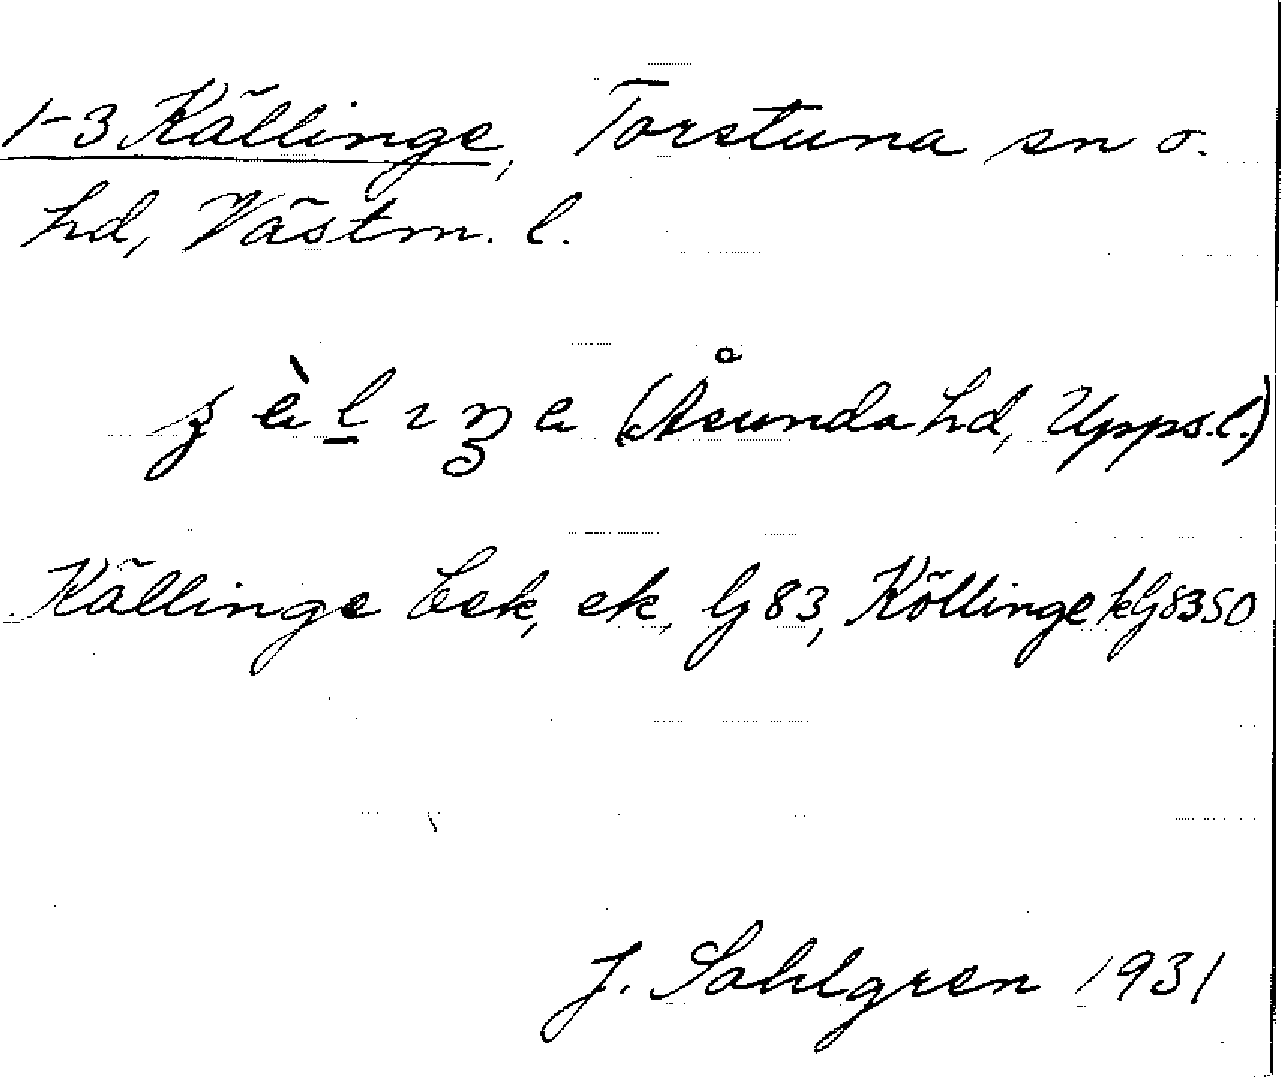 1-3 Källinge, Torstuna sn o.
hd, Västm. l.
(Åsunda hd, Upps.l.)
Källinge bek, ek, G 83, Köllinge kG 83 SO
J. Sahlgren 1931